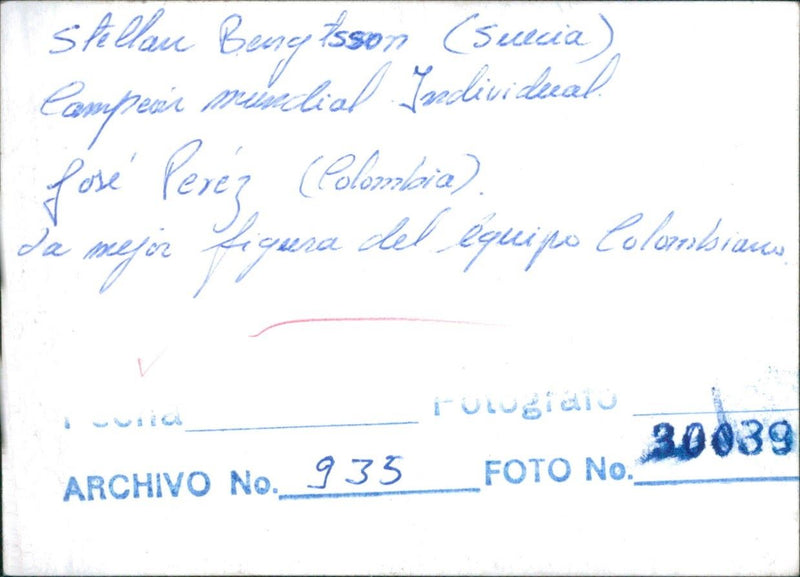 Stellan Bengtsson (Suecia)
Campeón mundial Individual.
José Peréz (Colombia).
La mejor figura del équipo Colombiano.
Fecha Fotógrafo
ARCHIVO No. 935 FOTO No. 30039